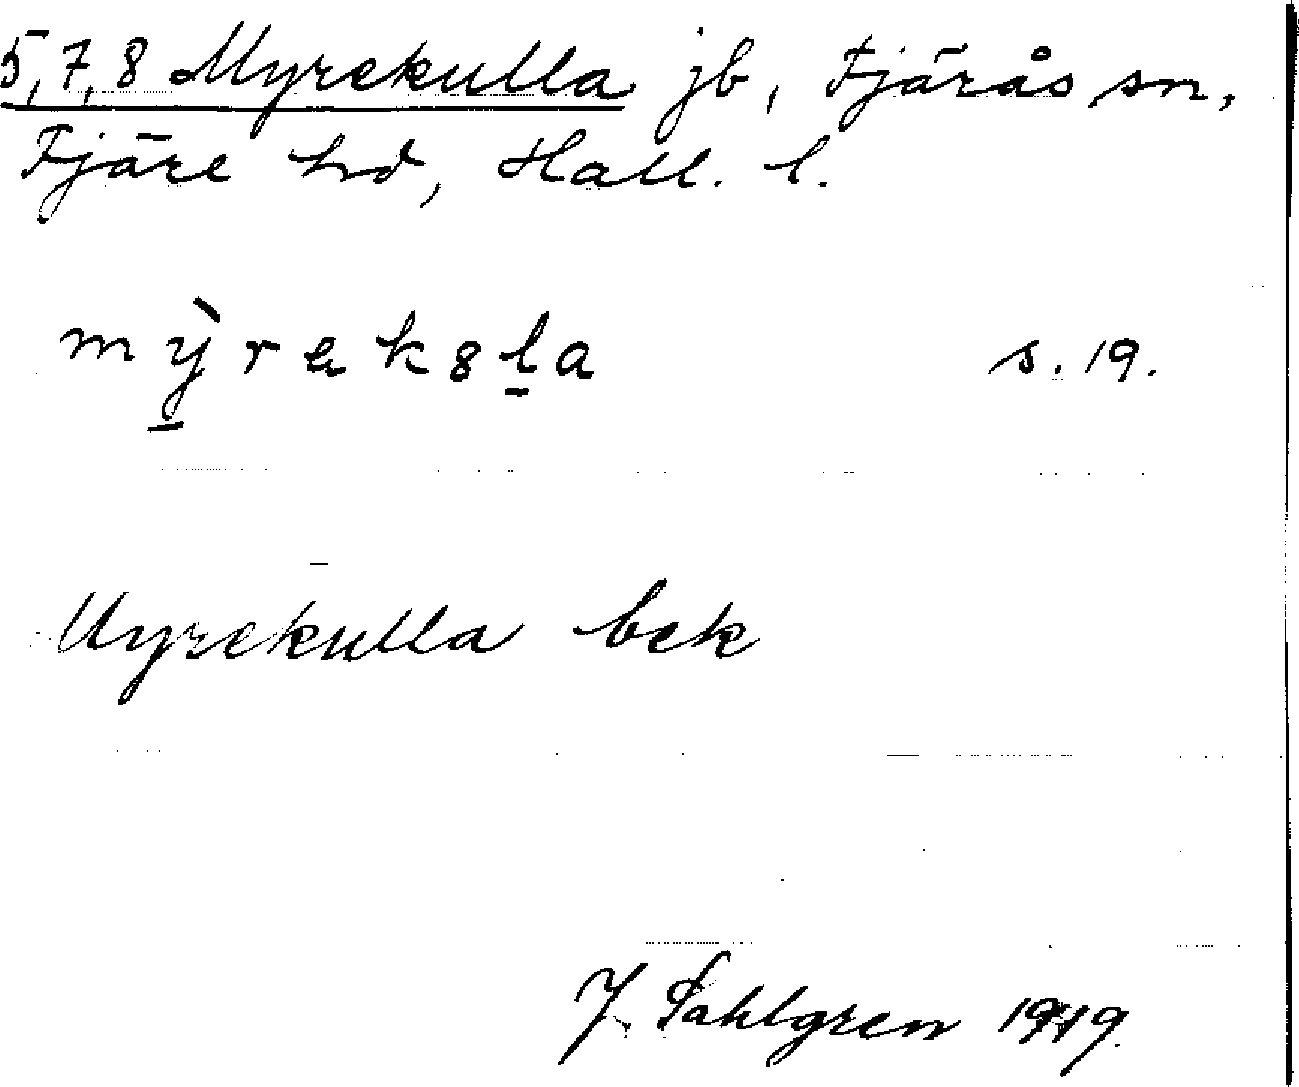 5,7,8 Myrekulla jb, Fjärås sn,
Fjäre hd, Hall. l.
mỳrek8la s. 19.
Myrekulla bek
J. Sahlgren 1919.